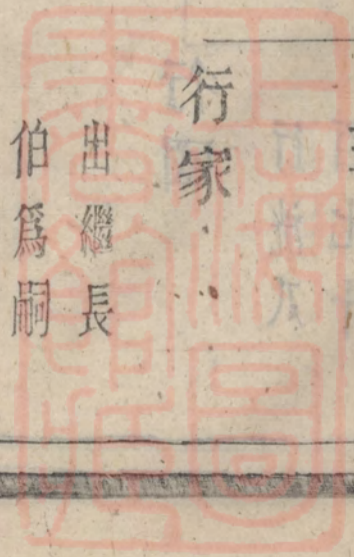 行家
出繼長
伯爲嗣